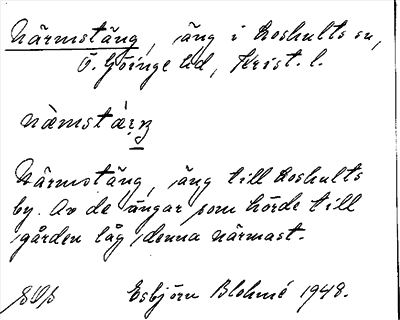 Närmstäng, äng i Loshults sn,
Ö. Göinge hd, Krist. l.
nà̀mstäŋ
Närmstäng, äng till Loshults
by. Av de ängar som hörde till
gården låg denna närmast.
Esbjörn Blohmé 1948.